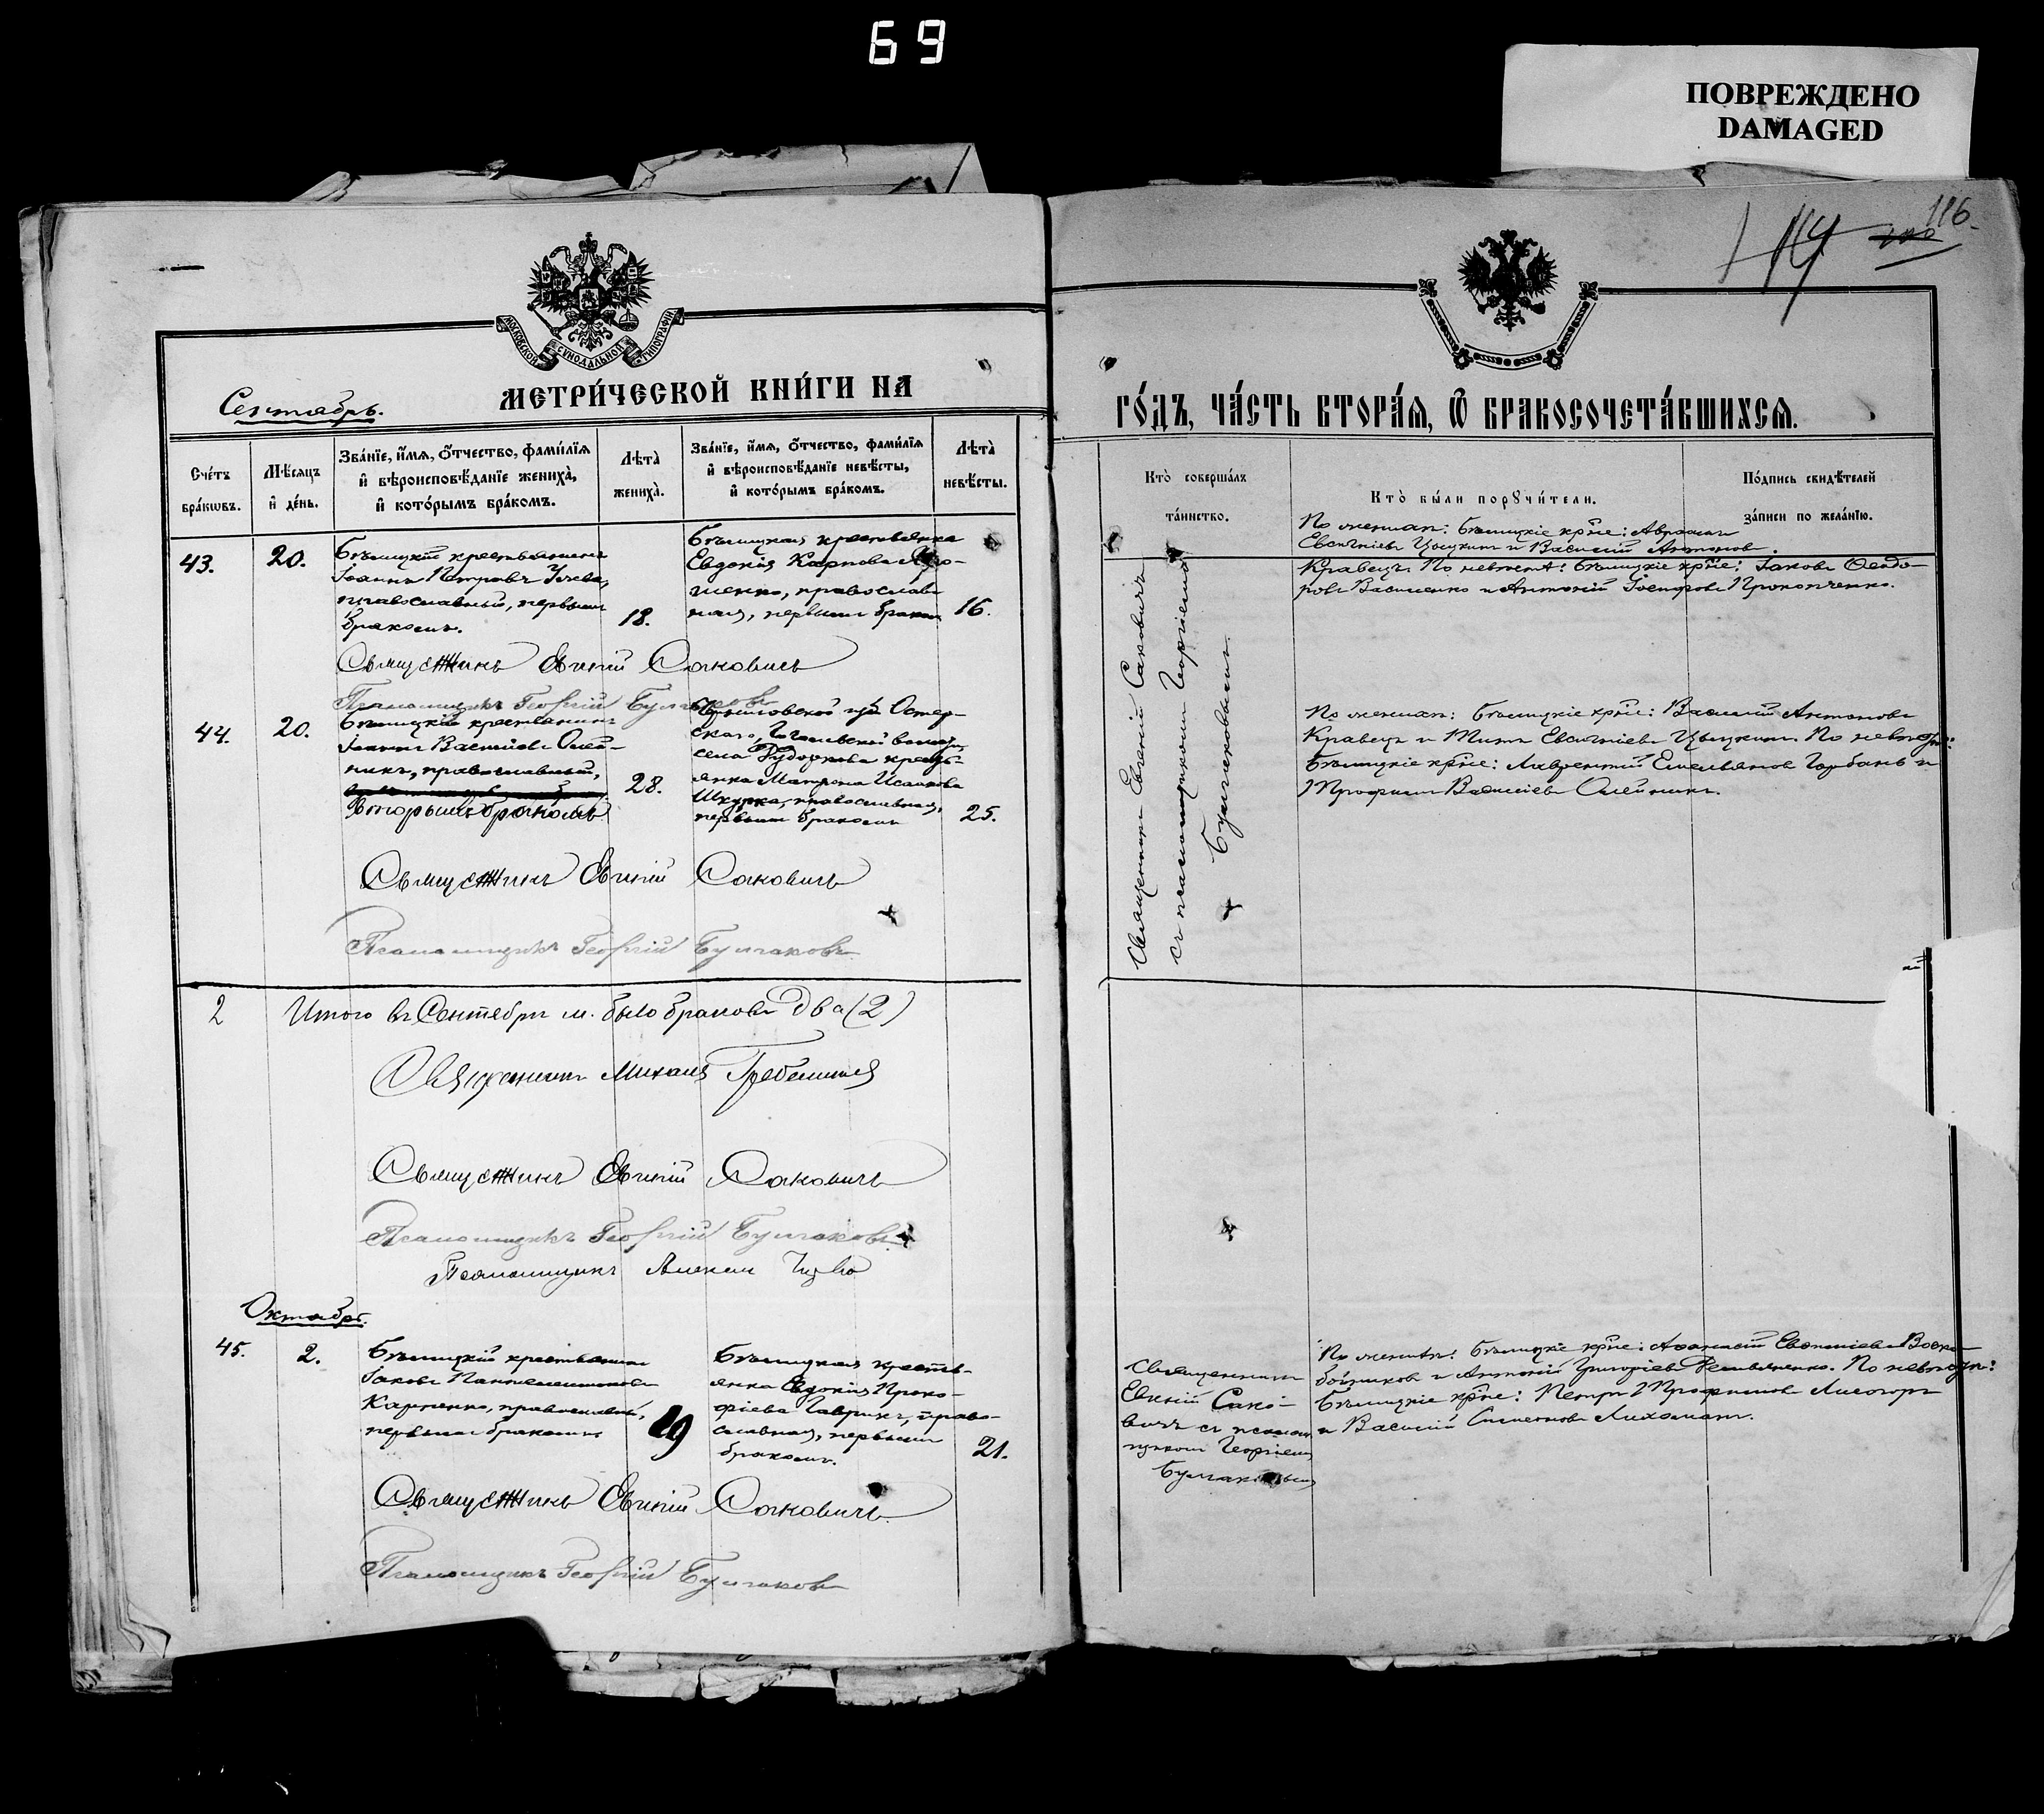 69
ПОВРЕЖДЕНО
DAMAGED
116
МОСКОВСКОЙ СУНОДАЛЬНОЙ ТИПОГРАФІИ
Сентябрь.
МЕТРИ́ЧЕСКОЙ КНИ́ГИ НА
ГО́ДЪ, ЧА́СТЬ ВТОРА́Я, Ѿ БРАКОСОЧЕТА́ВШИХСЯ.
Сче́тъ бра́кѡвъ.
Мѣ́сяцъ и҆ де́нь.
Зва́нїе, и҆́мя, ѻ҆́тчество, фами́лїя
и҆ вѣроисповѣ́данїе жениха̀,
и҆ кото́рымъ бра́комъ.
Лѣта̀ жениха̀.
Зва́нїе, и҆́мя, ѻ҆́тчество, фами́лїя
и҆ вѣроисповѣ́данїе невѣ́сты,
и҆ кото́рымъ бра́комъ.
Лѣта̀ невѣ́сты.
Кто̀ соверша́лъ
та́инство.
Кто̀ бы́ли порꙋчи́тели.
По́дпись свидѣ́телей
за́писи по жела́нїю.
43.
20.
Бѣлицкій крестьянинъ
Іоаннъ Петровъ
православный, первымъ
бракомъ.
18.
Бѣлицкая крестьянка
Евдокія Карпова
православ
ная, первымъ бракомъ
16.
Священникъ Евгеній Саковичъ
съ псаломщикомъ Георгіемъ
Булгаковымъ.
По женихѣ: Бѣлицкіе кр̃не: Авраамъ
Евсигніевъ Цыцкинъ и Василій Антоновъ
Кравецъ. По невѣстѣ: Бѣлицкіе кр̃не: Іаковъ Ѳеодо-
ровъ Василенко и Антоній Прокопченко.
Священникъ Евгеній Саковичъ
Псаломщикъ Георгій Булгаковъ
44.
20.
Бѣлицкій крестьянинъ
Іоаннъ Василіевъ Олей-
никъ, православный,
Вторымъ бракомъ
28.
Черниговской губ. Остер-
скаго, Гоголевской волости,
села Рудокова кресть-
янка Матрона Исаакова
Шкурка, православная,
первымъ бракомъ
25.
По женихѣ: Бѣлицкіе кр̃не: Василій Антоновъ
Кравецъ и Титъ Евсигніевъ Цыцкинъ. По невѣстѣ:
Бѣлицкіе кр̃не: Лаврентій Емельяновъ Горбань и
Трофимъ Василіевъ Олейникъ.
Священникъ Евгеній Саковичъ
Псаломщикъ Георгій Булгаковъ
2
Итого въ Сентябрѣ м. было браковъ два (2)
Священникъ Михаилъ
Священникъ Евгеній Саковичъ
Псаломщикъ Георгій Булгаковъ
Псаломщикъ Алексѣй
Октябрь.
45.
2.
Бѣлицкій крестьянинъ
Іаковъ Пантелеимоновъ
Карпенко, православный,
первымъ бракомъ
19
Бѣлицкая кресть-
янка Евдокія Проко-
фіева Гаврикъ, право-
славная, первымъ
бракомъ.
21.
Священникъ
Евгеній Сако-
вичъ съ псалом
щикомъ Георгіемъ
Булгаковымъ
По женихѣ: Бѣлицкіе кр̃не: Аѳанасій
и Антоній Григоріевъ По невѣстѣ:
Бѣлицкіе кр̃не: Петръ Трофимовъ Лисогоръ
и Василій Симеоновъ Лихоманъ.
Священникъ Евгеній Саковичъ
Псаломщикъ Георгій Булгаковъ